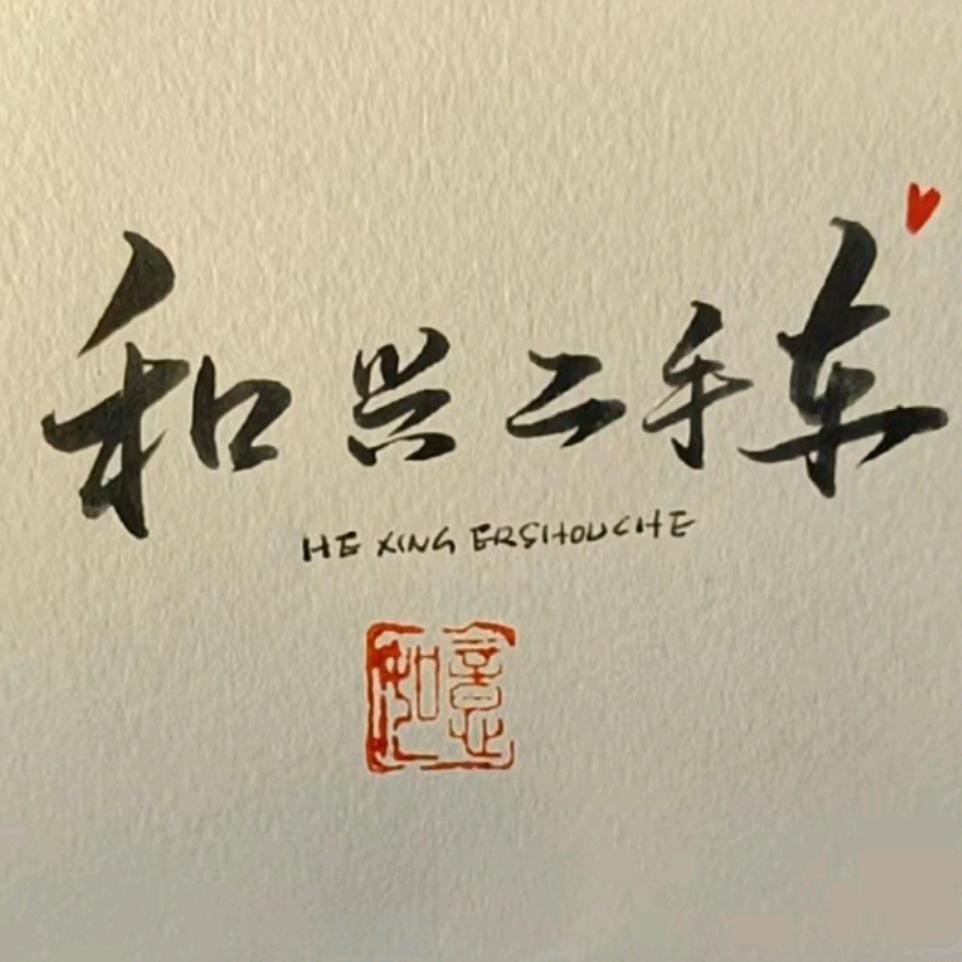 和兴二手车
HE XING ERSHOUCHE
如意